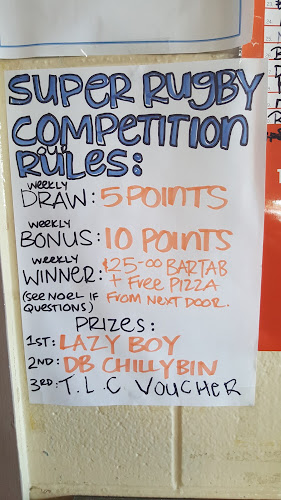 SUPER RUGBY
COMPETITION
RULES:
WEEKLY
DRAW: 5 POINTS
WEEKLY
BONUS: 10 POINTS
WEEKLY
WINNER: $25-00 BARTAB
+ FREE PIZZA
(SEE NOEL IF FROM NEXT DOOR.
QUESTIONS)
PRIZES:
1ST: LAZY BOY
2ND: DB CHILLYBIN
3RD: T.L.C VOUCHER